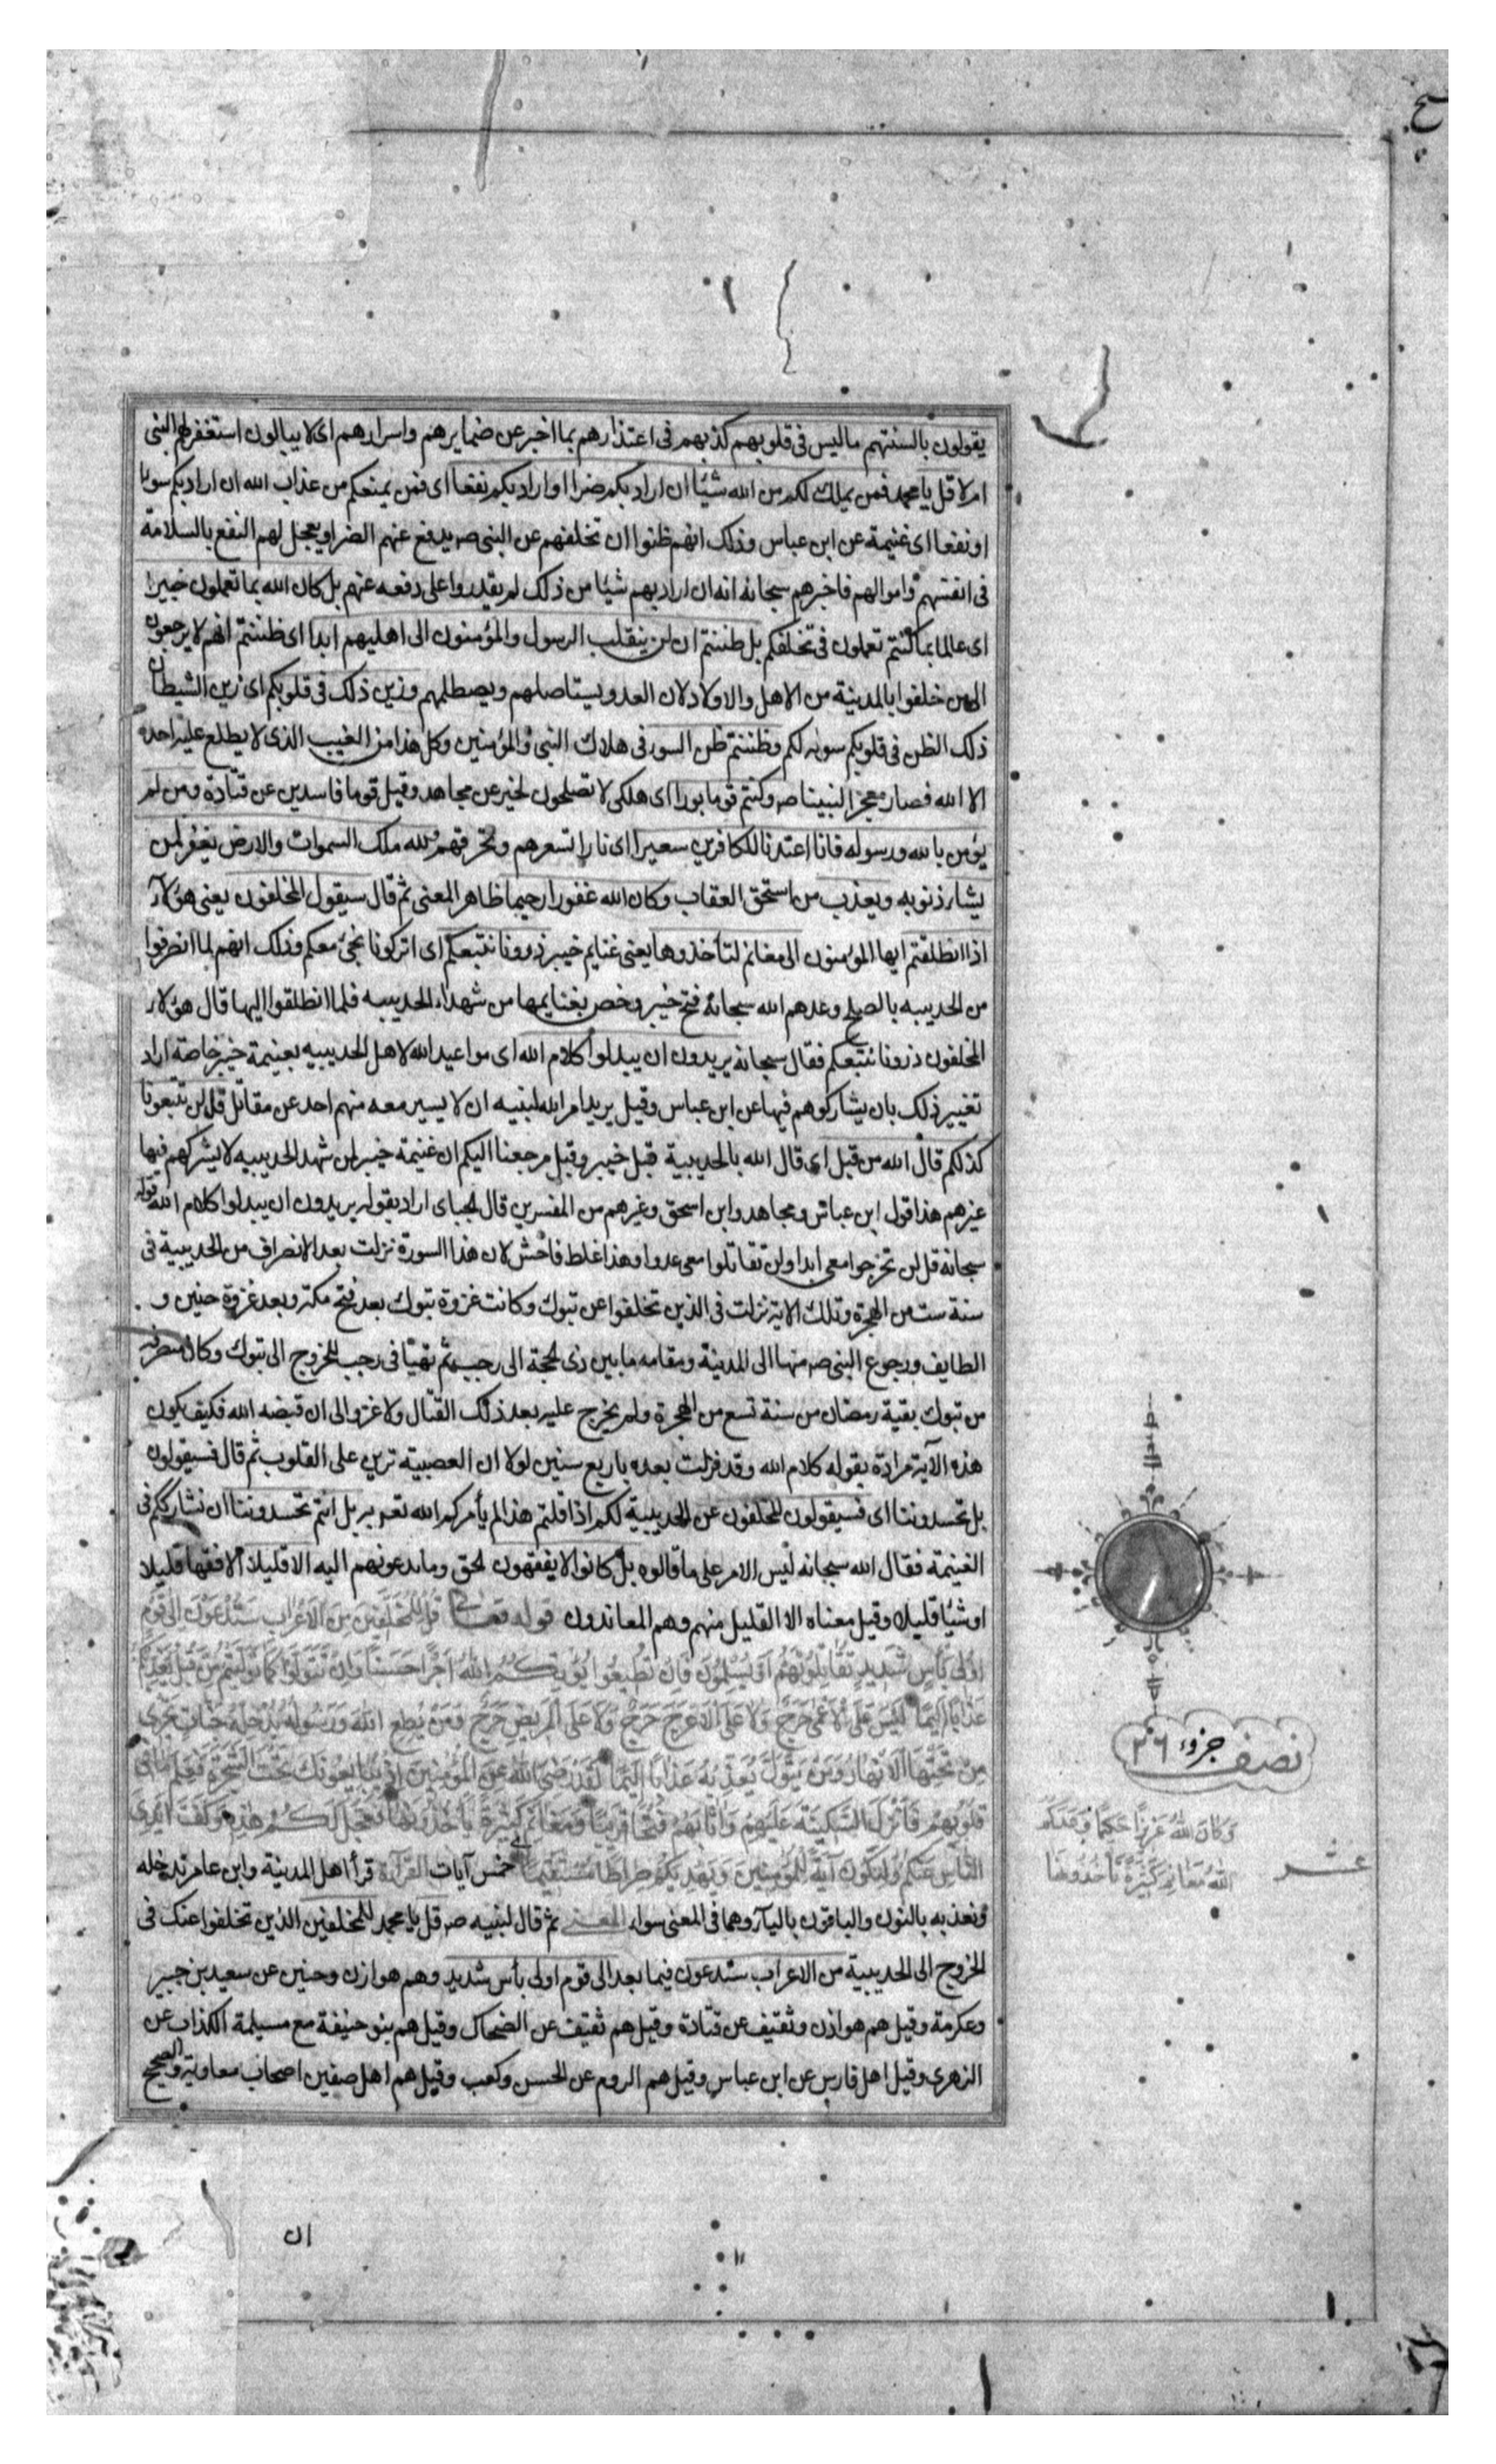 يقولون بالسنتهم ما ليس فى قلوبهم كذبهم فى اعتذارهم بما اخبر عن ضمايرهم واسرارهم اى لا يبالون استغفر لهم النبى
ام لا قل يا محمد فمن يملك لكم من الله شيئا ان اراد بكم ضرا او اراد بكم نفعا اى فمن يمنعكم من عذاب الله ان اراد بكم سوءا
او نفعا اى غنيمة عن ابن عباس وذلك انهم ظنوا ان تخلفهم عن النبى صه يدفع عنهم الضر او يعجل لهم النفع بالسلامة
فى انفسهم واموالهم فاخبرهم سبحانه انه ان اراد بهم شيئا من ذلك لم يقدروا على دفعه عنهم بل كان الله بما تعملون خبيرا
اى عالما بما كنتم تعملون فى تخلفكم بل ظننتم ان لن ينقلب الرسول والمؤمنون الى اهليهم ابدا اى ظننتم انهم لا يرجعون
الى من خلفوا بالمدينة من الاهل والاولاد لان العدو يستاصلهم ويصطلمهم وزين ذلك فى قلوبكم اى زين الشيطان
ذلك الظن فى قلوبكم سوله لكم وظننتم ظن السوء فى هلاك النبى والمؤمنين وكل هذا من الغيب الذى لا يطلع عليه احد
الا الله فصار معجزا لنبينا صه وكنتم قوما بورا اى هلكى لا تصلحون لخير عن مجاهد وقيل قوما فاسدين عن قتادة ومن لم
يؤمن بالله ورسوله فانا اعتدنا للكافرين سعيرا اى نارا تسعرهم وتحرقهم ولله ملك السموات والارض يغفر لمن
يشاء ذنوبه ويعذب من استحق العقاب وكان الله غفورا رحيما ظاهر المعنى ثم قال سيقول المخلفون يعنى هؤلاء
اذا انطلقتم ايها المؤمنون الى مغانم لتأخذوها يعنى غنايم خيبر ذرونا نتبعكم اى اتركونا نجئ معكم وذلك انهم لما انصرفوا
من الحديبيه بالصلح وعدهم الله سبحانه فتح خيبر وخص بغنايمها من شهد الحديبيه فلما انطلقوا اليها قال هؤلاء
المخلفون ذرونا نتبعكم فقال سبحانه يريدون ان يبدلوا كلام الله اى مواعيد الله لاهل الحديبيه بغنيمة خيبر خاصة اراد
تغيير ذلك بان يشاركوهم فيها عن ابن عباس وقيل يريد امر الله لنبيه ان لا يسير معه منهم احد عن مقاتل قل لن تتبعونا
كذلكم قال الله من قبل اى قال الله بالحديبية قبل خيبر وقبل مرجعنا اليكم ان غنيمة خيبر لمن شهد الحديبيه لا يشركهم فيها
غيرهم هذا قول ابن عباس ومجاهد وابن اسحق وغيرهم من المفسرين قال الجباى اراد بقوله يريدون ان يبدلوا كلام الله قوله
سبحانه قل لن تخرجوا معى ابدا ولن تقاتلوا معى عدوا وهذا غلط فاحش لان هذا السورة نزلت بعد الانصراف من الحديبية فى
سنة ست من الهجرة وتلك الاية نزلت فى الذين تخلفوا عن تبوك وكانت غزوة تبوك بعد فتح مكة وبعد غزوة حنين و
الطايف ورجوع النبى صه منها الى المدينة ومقامه ما بين ذى الحجة الى رجب ثم تهيئا فى رجب للخروج الى تبوك وكان منصرفه
من تبوك بقية رمضان من سنة تسع من الهجرة ولم يخرج عليه بعد ذلك القتال ولا غزو الى ان قبضه الله فكيف يكون
هذه الآية مرادة بقوله كلام الله وقد نزلت بعده باربع سنين لولا ان العصبية ترين على القلوب ثم قال فسيقولون
بل تحسدوننا اى فسيقولون المخلفون عن الحديبية لكم اذا قلتم هذا لم يأمركم الله تعم به بل انتم تحسدوننا ان نشارككم فى
الغنيمة فقال الله سبحانه ليس الامر على ما قالوه بل كانوا لا يفقهون الحق وما تدعونهم اليه الا قليلا الا فقها قليلا
او شيئا قليلا وقيل معناه الا القليل منهم وهم المعاندون قوله تعالى قُلْ لِلْمُخَلَّفِينَ مِنَ الْاَعْرَابِ سَتُدْعَوْنَ اِلَى قَوْمٍ
اُولِى بَأْسٍ شَدِيدٍ تُقَاتِلُونَهُمْ اَوْ يُسْلِمُونَ فَاِنْ تُطِيعُوا يُؤْتِكُمُ اللهُ اَجْرًا حَسَنًا وَاِنْ تَتَوَلَّوْا كَمَا تَوَلَّيْتُمْ مِنْ قَبْلُ يُعَذِّبْكُمْ
عَذَابًا اَلِيمًا لَيْسَ عَلَى الْاَعْمَى حَرَجٌ وَلَا عَلَى الْاَعْرَجِ حَرَجٌ وَلَا عَلَى الْمَرِيضِ حَرَجٌ وَمَنْ يُطِعِ اللهَ وَرَسُولَهُ يُدْخِلْهُ جَنَّاتٍ تَجْرِى
مِنْ تَحْتِهَا الْاَنْهَارُ وَمَنْ يَتَوَلَّ يُعَذِّبْهُ عَذَابًا اَلِيمًا لَقَدْ رَضِىَ اللهُ عَنِ الْمُؤْمِنِينَ اِذْ يُبَايِعُونَكَ تَحْتَ الشَّجَرَةِ فَعَلِمَ مَا فِى
قُلُوبِهِمْ فَاَنْزَلَ السَّكِينَةَ عَلَيْهِمْ وَاَثَابَهُمْ فَتْحًا قَرِيبًا وَمَغَانِمَ كَثِيرَةً يَأْخُذُونَهَا فَعَجَّلَ لَكُمْ هَذِهِ وَكَفَّ اَيْدِىَ
النَّاسِ عَنْكُمْ وَلِتَكُونَ آيَةً لِلْمُؤْمِنِينَ وَيَهْدِيَكُمْ صِرَاطًا مُسْتَقِيمًا خمس آيات القراءة قرأ اهل المدينة وابن عامر ندخله
ونعذبه بالنون والباقون باليآء وهما فى المعنى سواء المعنى ثم قال لنبيه صه قل يا محمد للمخلفين الذين تخلفوا عنك فى
الخروج الى الحديبية من الاعراب ستدعون فيما بعد الى قوم اولى بأس شديد وهم هوازن وحنين عن سعيد بن جبير
وعكرمة وقيل هم هوازن وثقيف عن قتادة وقيل هم ثقيف عن الضحاك وقيل هم بنو حنيفة مع مسيلمة الكذاب عن
الزهرى وقيل اهل فارس عن ابن عباس وقيل هم الروم عن الحسن وكعب وقيل هم اهل صفين اصحاب معاوية والصحيح
نصف جزؤ ٢٦
وَكَانَ اللهُ عَزِيزًا حَكِيمًا وَعَدَكُمُ
اللهُ مَغَانِمَ كَثِيرَةً تَأْخُذُونَهَا
عشر
ان